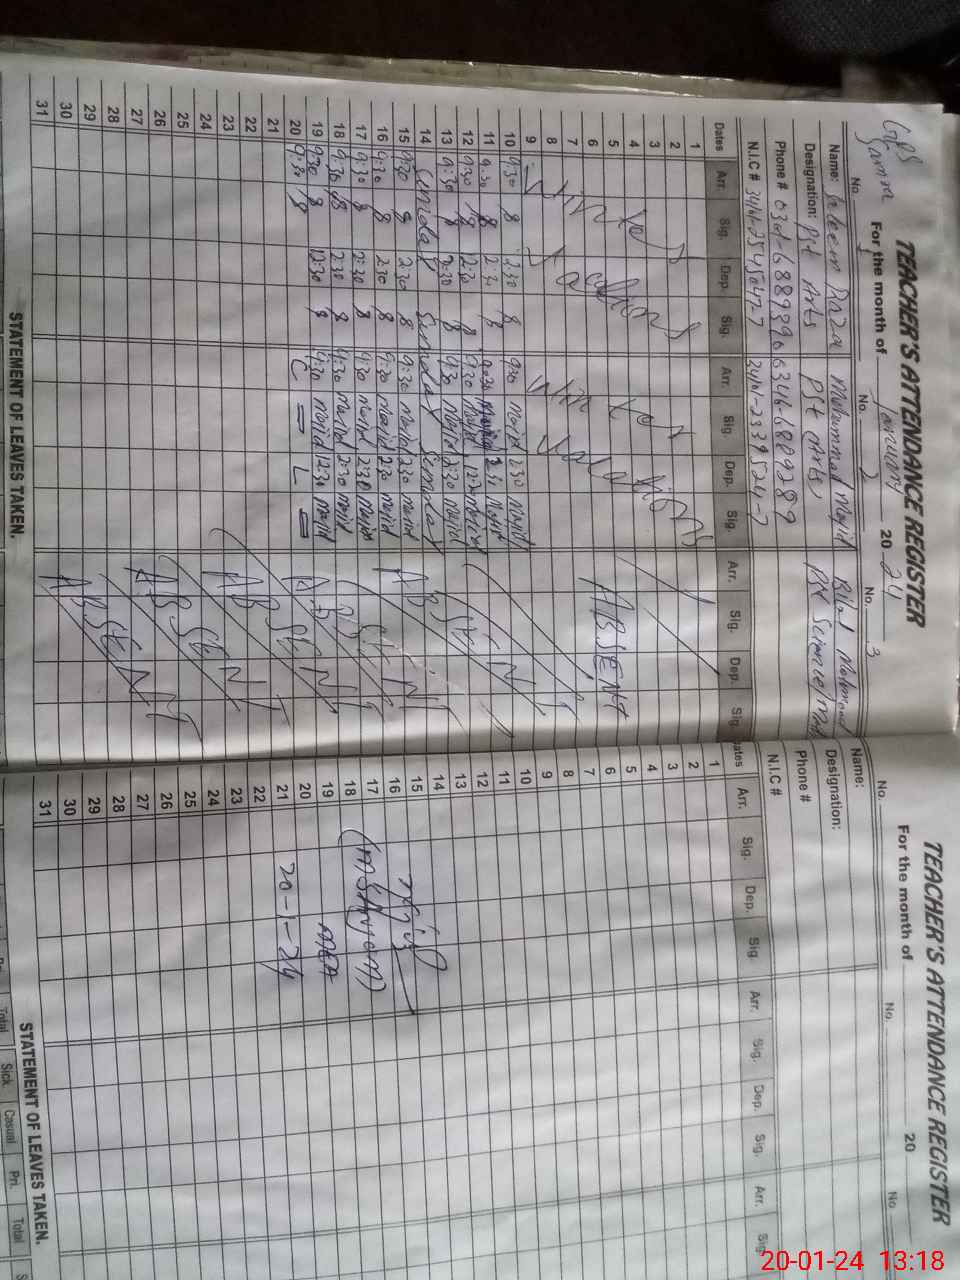 TEACHER'S ATTENDANCE REGISTER
GPS
Samma For the month of January 20 24
No. 1 No. 2 No. 3
Name: Raza Muhammad Majid Bilal Mehmood
Designation: Pst Arts Pst Arts Pst Science/Math
Phone # 0346-6889289
N.I.C #
Dates Arr. Sig. Dep. Sig. Arr. Sig. Dep. Sig. Arr. Sig. Dep. Sig.
1
2
3
4
5
6
7
8
9
Winter Vacations Winter Vacations ABSENT
10 9:30 2:30 9:30 Majid 2:30 Majid
11 9:30 2:30 9:30 Majid 2:30 Majid
12 9:30 12:30 9:30 Majid 12:30 Majid
13 9:30 2:30 9:30 Majid 2:30 Majid
14 Sunday Sunday Sunday Sunday
15 9:30 2:30 9:30 Majid 2:30 Majid
16 9:30 2:30 9:30 Majid 2:30 Majid
17 9:30 2:30 9:30 Majid 2:30 Majid
18 9:30 2:30 9:30 Majid 2:30 Majid
19 9:30 12:30 9:30 Majid 12:30 Majid
20 9:30 C L
21
22
23
24
25
26
27
28
29
30
31
ABSENT
ABSENT
ABSENT
ABSENT
ABSENT
ABSENT
STATEMENT OF LEAVES TAKEN.
TEACHER'S ATTENDANCE REGISTER
For the month of 20
No. No. No.
Name:
Designation:
Phone #
N.I.C #
ates Arr. Sig. Dep. Sig. Arr. Sig. Dep. Sig. Arr. Sig
1
2
3
4
5
6
7
8
9
10
11
12
13
14
15
16
17
18
19
20
21
22
23
24
25
26
27
28
29
30
31
MEA
20-1-24
STATEMENT OF LEAVES TAKEN.
Total Sick Casual Pri. Total
20-01-24 13:18